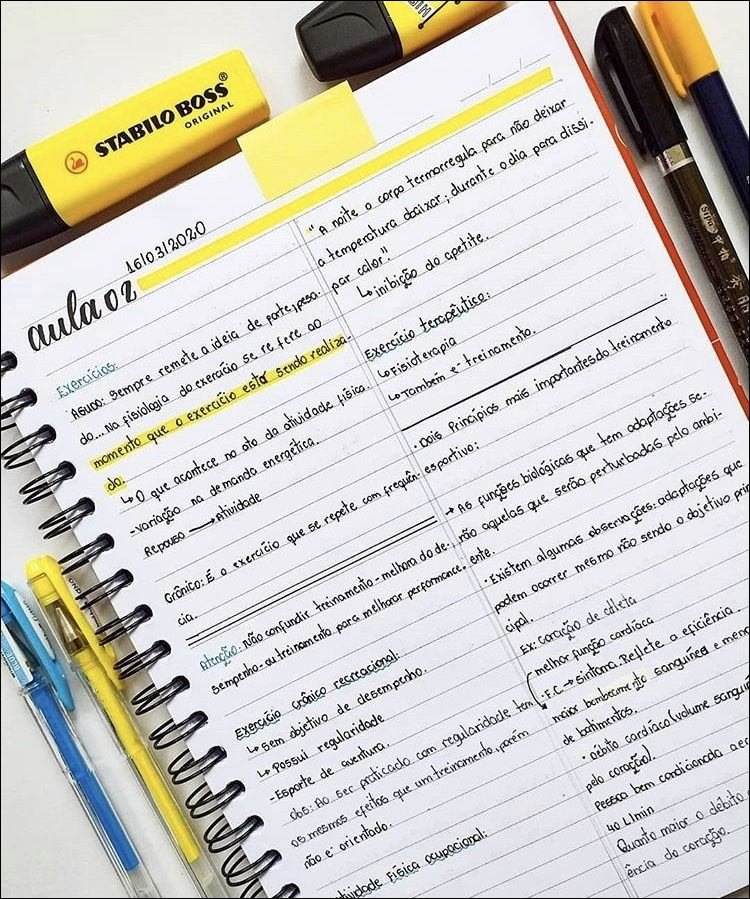 STABILO BOSS®
ORIGINAL
16/03/2020
aula 02
Exercícios:
Aguco: Sempre remete a ideia de porte, pesa-
do... Na fisiologia do exercião se re fere ao
momento que o exercício está sendo realiza-
do.
↳ O que acontece no ato da atividade física.
-variação na demanda energética.
Repouso → Atividade
Crônico: É o exercício que se repete com frequên-
cia.
Atenção: não confundir treinamento - melhora do de-
sempenho - ou treinamento para melhorar performance.
Exercício crônico recreacional:
↳ Sem objetivo de desempenho.
↳ Possui regularidade
-Esporte de aventura.
obs: Ao ser praticado com regularidade tem
os mesmos efeitos que um treinamento, porém
não é orientado.
tividade Física ocupacional:
"A noite o corpo termorregula para não deixar
a temperatura abaixar, durante o dia para dissi-
par calor."
↳ inibição do apetite.
Exercício terapêutico:
↳ Fisioterapia
↳ Também é treinamento.
• Dois Princípios mais importantes do treinamento
esportivo:
→ As funções biológicas que tem adaptações se-
rão aquelas que serão perturbadas pelo ambi-
ente.
• Existem algumas observações: adaptações que
podem ocorrer mesmo não sendo o objetivo prin
cipal.
Ex: Coração de atleta
melhor função cardíaca
F.C → sintoma. Reflete a eficiência.
maior bombeamento sanguíneo e meno
de batimentos.
• débito cardíaco (volume sanguín
pelo coração).
Pessoa bem condicionada a
40 L/min
Quanto maior o débito
ência do coração.